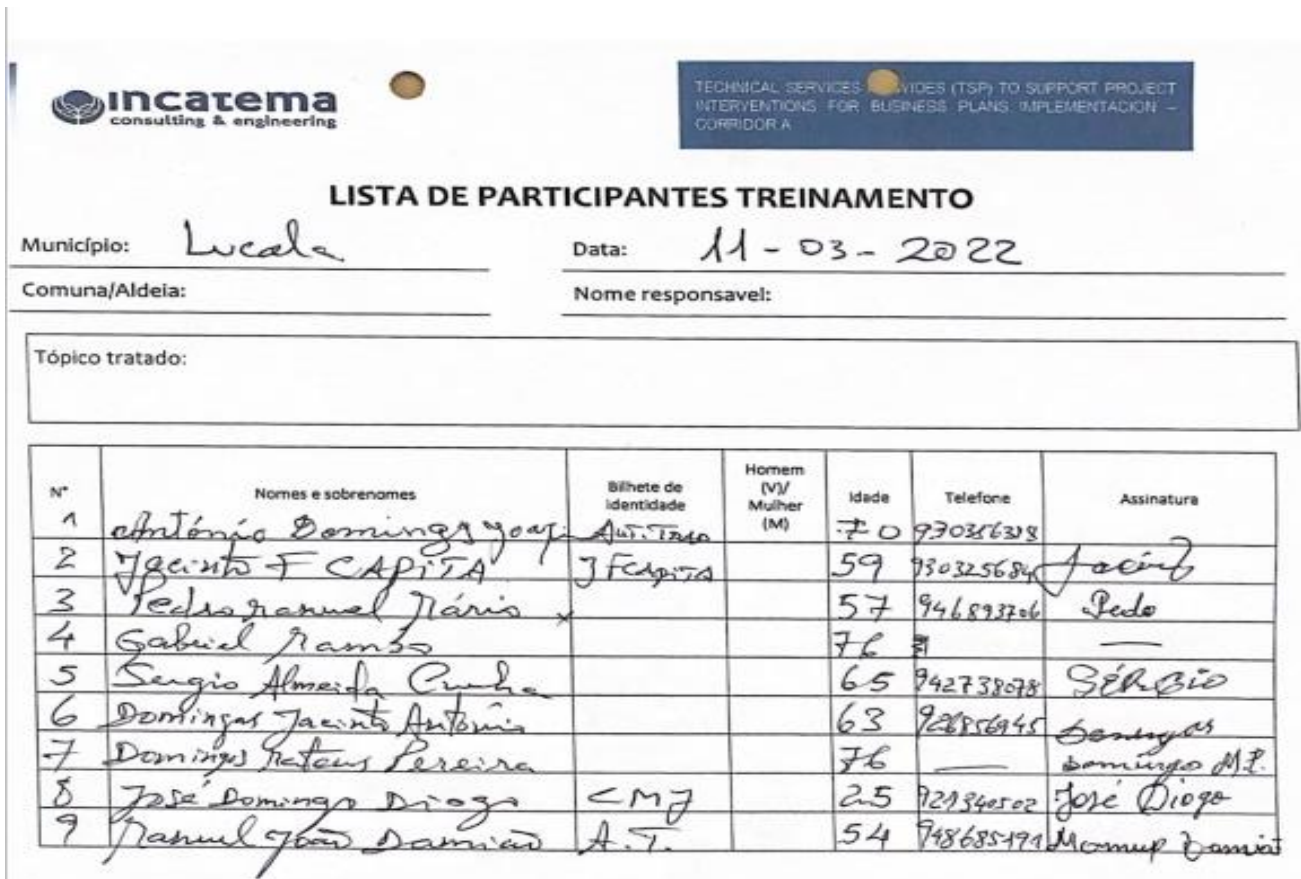 incatema
consulting & engineering
TECHNICAL SERVICES (TSP) TO SUPPORT PROJECT
INTERVENTIONS FOR BUSINESS PLANS IMPLEMENTACION –
CORRIDOR A
LISTA DE PARTICIPANTES TREINAMENTO
Município: Lucala Data: 11-03-2022
Comuna/Aldeia: Nome responsavel:
Tópico tratado:
N° Nomes e sobrenomes Bilhete de identidade Homem (V)/ Mulher (M) Idade Telefone Assinatura
1 António Domingos 70
2 Jacinto F CAPITA J F CAPITA 59 930325684 Jacint
3 Pedro Manuel Mário x 57 946893706 Pedo
4 Gabriel 76 —
5 Sergio Almeida Cunha 65 942738078 SÉRGIO
6 Domingas Jacinto António 63 926856945
7 Domingos Mateus Pereira 76 — Domingo M.P.
8 José Domingo Diogo CMJ 25 921340502 José Diogo
9 Manuel João Damião A.T. 54 948685191